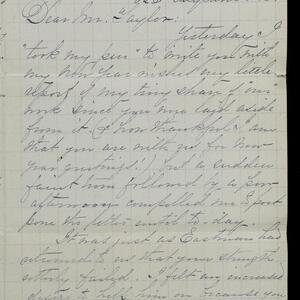 Dear Mr. Taylor:
Yesterday I
"took my pen" to write you with
my New Year wishes my little
report of my tiny share of our
work since you were laid aside
from it. (& how thankful I am
that you are with us for New
Year greetings!) but a sudden
faint turn followed by a poor
afternoon compelled me to post
pone the letter until to day.
It was just as Eastman had
returned to us that your strength
utterly failed. I felt an increased
desire to help him on because you